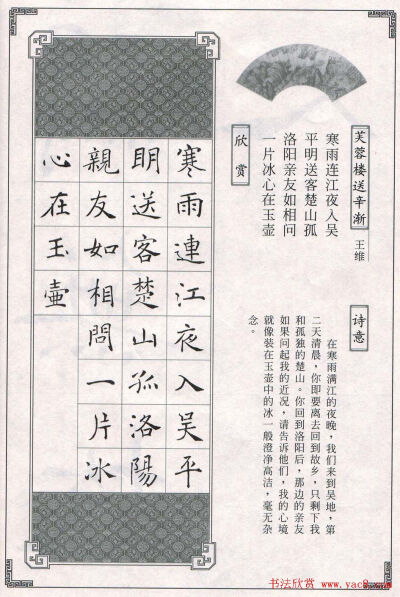 芙蓉楼送辛渐
王维
寒雨连江夜入吴
平明送客楚山孤
洛阳亲友如相问
一片冰心在玉壶
欣赏
诗意
在寒雨满江的夜晚，我们来到吴地，第
二天清晨，你即要离去回到故乡，只剩下我
和孤独的楚山。你回到洛阳后，那边的亲友
如果问起我的近况，请告诉他们，我的心境
就像装在玉壶中的冰一般澄净高洁，毫无杂
念。
寒雨連江夜入吴平
明送客楚山孤洛陽
親友如相問一片冰
心在玉壺
书法欣赏 www.yac8.com